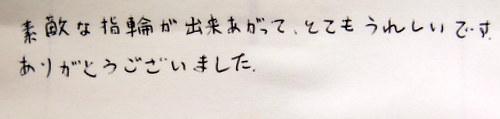 素敵な指輪が出来あがって、とてもうれしいです.
ありがとうございました.